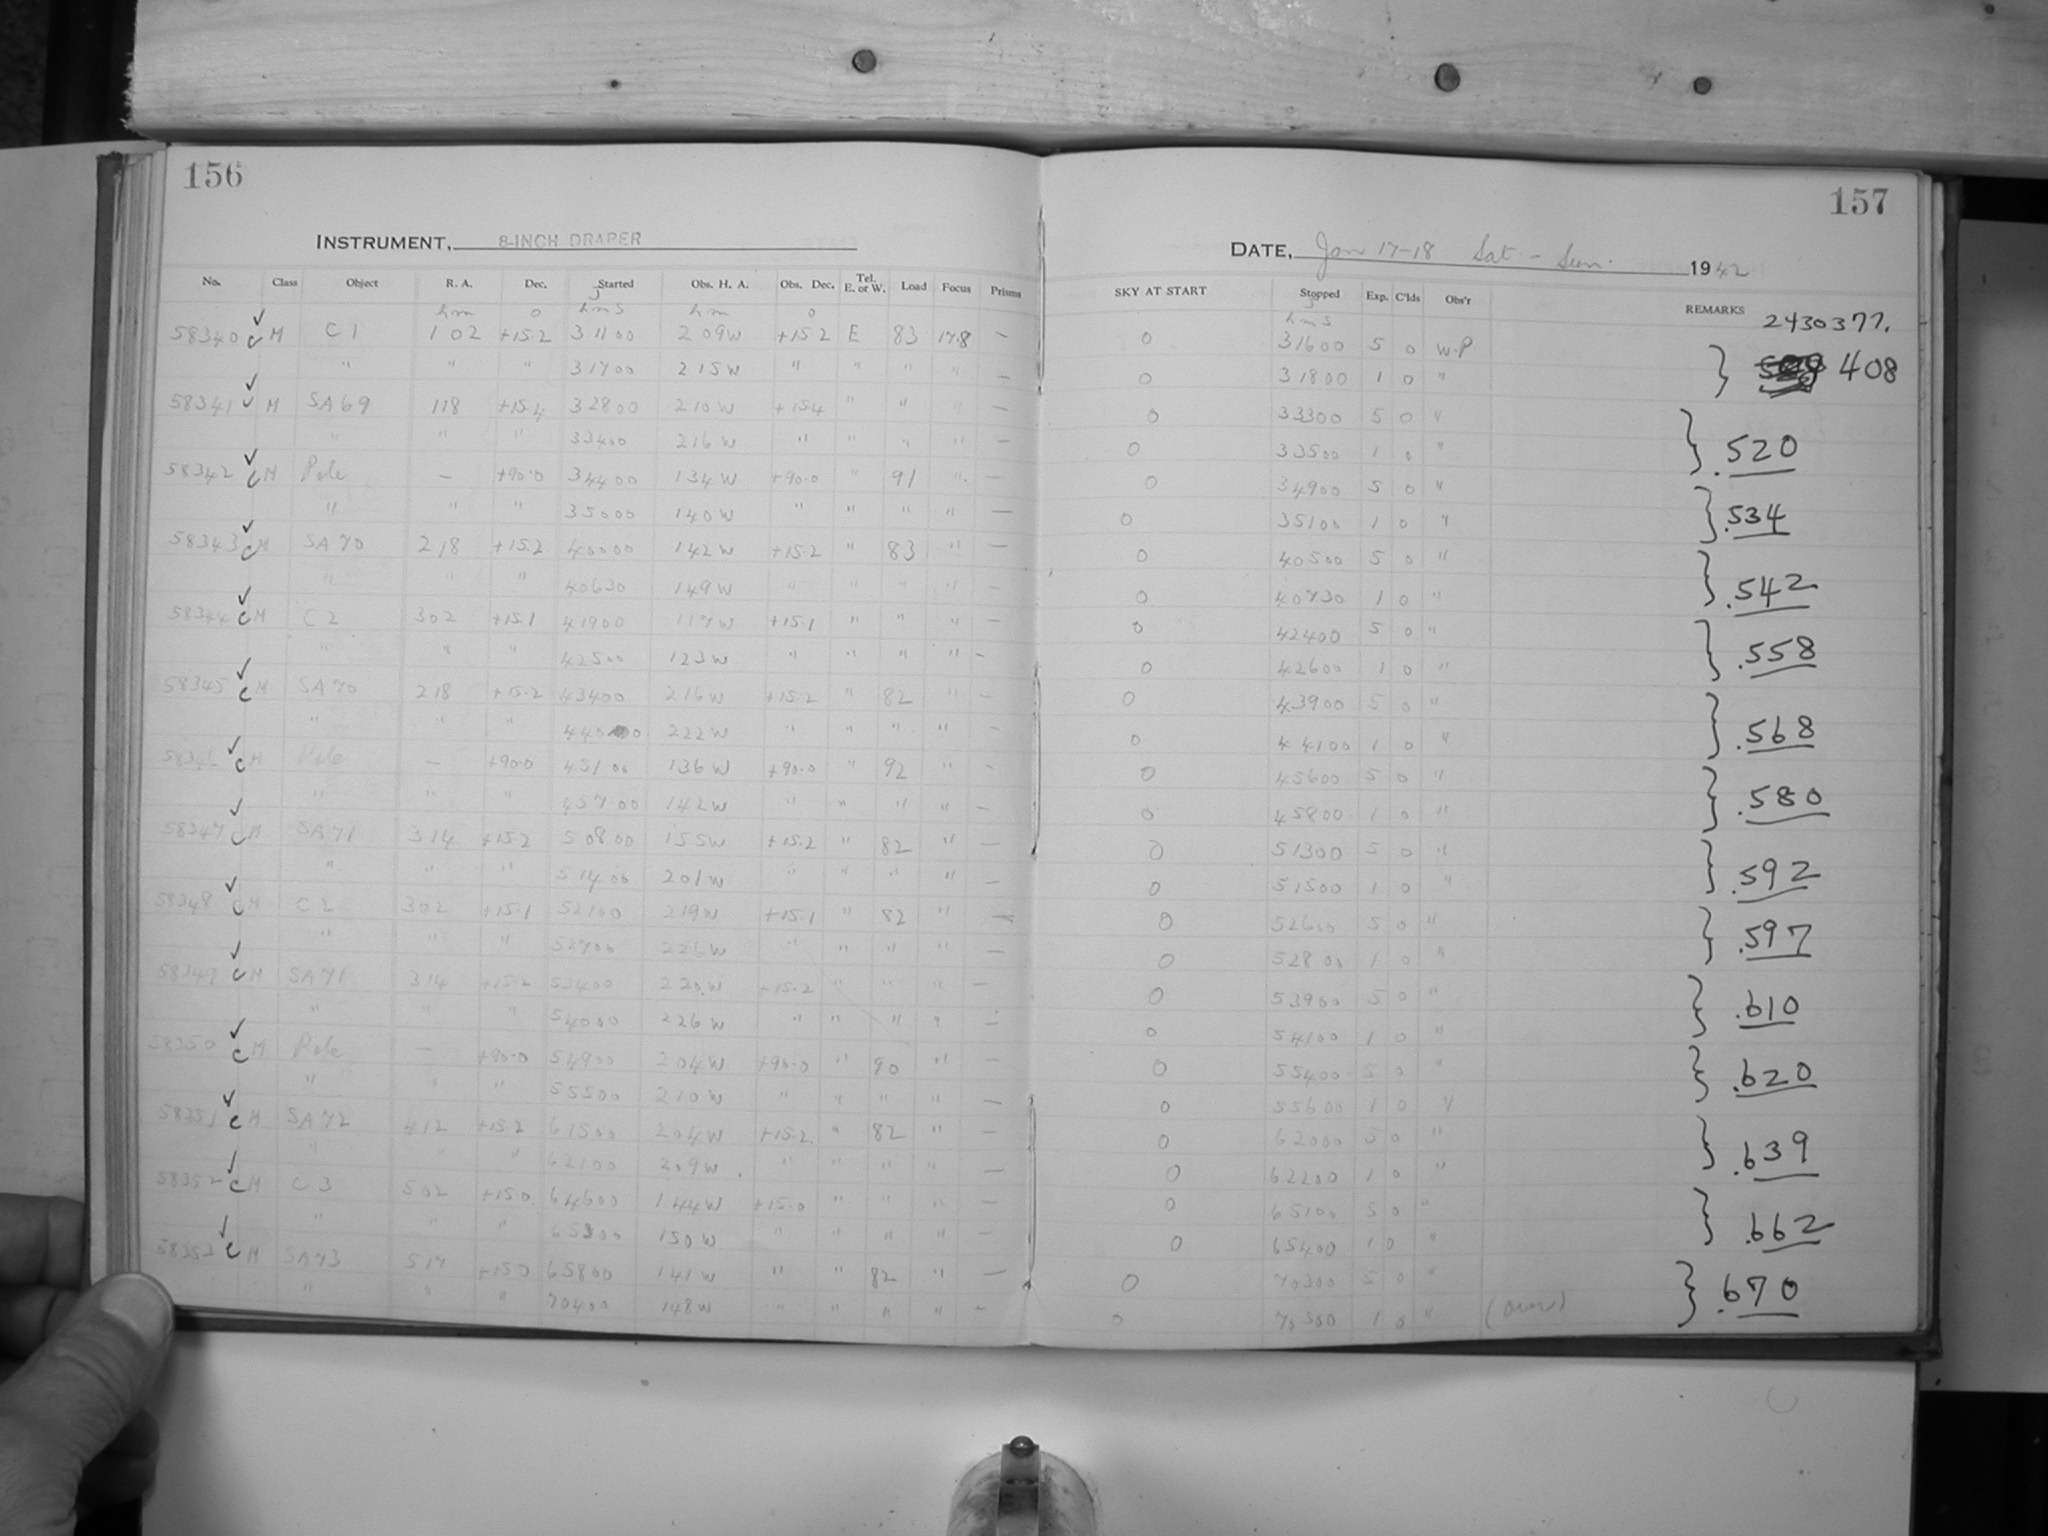 156
157
INSTRUMENT, 8-INCH DRAPER
DATE, Jan 17-18 Sat. - Sun. 1942
No. Class Object R. A. Dec. Started Obs. H. A. Obs. Dec. Tel. E. or W. Load Focus Prisms SKY AT START Stopped Exp. C'lds Obs'r REMARKS
h m o h m s h m o h m s 2430377.
58340 ✓ C M C 1 1 02 +15.2 3 11 00 2 09 W +15.2 E 83 17.8 — 0 3 16 00 5 0 W.P.
" " " 3 17 00 2 15 W " " " " — 0 3 18 00 1 0 " } 408
58341 ✓ M SA 69 1 18 +15.4 3 28 00 2 10 W +15.4 " " " — 0 3 33 00 5 0 "
" " " 3 34 00 2 16 W " " " " — 0 3 35 00 1 0 " } .520
58342 ✓ C M Pole — +90.0 3 44 00 1 34 W +90.0 " 91 " — 0 3 49 00 5 0 "
" " " 3 50 00 1 40 W " " " " — 0 3 51 00 1 0 " } .534
58343 ✓ C M SA 70 2 18 +15.2 4 00 00 1 42 W +15.2 " 83 " — 0 4 05 00 5 0 "
" " " 4 06 30 1 49 W " " " " — 0 4 07 30 1 0 " } .542
58344 ✓ C M C 2 3 02 +15.1 4 19 00 1 17 W +15.1 " " " — 0 4 24 00 5 0 "
" " " 4 25 00 1 23 W " " " " — 0 4 26 00 1 0 " } .558
58345 ✓ C M SA 70 2 18 +15.2 4 34 00 2 16 W +15.2 " 82 " — 0 4 39 00 5 0 "
" " " 4 40 00 2 22 W " " " " — 0 4 41 00 1 0 " } .568
58346 ✓ C M Pole — +90.0 4 51 00 1 36 W +90.0 " 92 " — 0 4 56 00 5 0 "
" " " 4 57 00 1 42 W " " " " — 0 4 58 00 1 0 " } .580
58347 ✓ C M SA 71 3 14 +15.2 5 08 00 1 55 W +15.2 " 82 " — 0 5 13 00 5 0 "
" " " 5 14 00 2 01 W " " " " — 0 5 15 00 1 0 " } .592
58348 ✓ C M C 2 3 02 +15.1 5 21 00 2 19 W +15.1 " 82 " — 0 5 26 00 5 0 "
" " " 5 27 00 2 26 W " " " " — 0 5 28 00 1 0 " } .597
58349 ✓ C M SA 71 3 14 +15.2 5 34 00 2 20 W +15.2 " " " — 0 5 39 00 5 0 "
" " " 5 40 00 2 26 W " " " " — 0 5 41 00 1 0 " } .610
58350 ✓ C M Pole — +90.0 5 49 00 2 04 W +90.0 " 90 " — 0 5 54 00 5 0 "
" " " 5 55 00 2 10 W " " " " — 0 5 56 00 1 0 " } .620
58351 ✓ C M SA 72 4 12 +15.2 6 15 00 2 04 W +15.2 " 82 " — 0 6 20 00 5 0 "
" " " 6 21 00 2 09 W " " " " — 0 6 22 00 1 0 " } .639
58352 ✓ C M C 3 5 02 +15.0 6 46 00 1 44 W +15.0 " " " — 0 6 51 00 5 0 "
" " " 1 50 W " " " " — 0 6 54 00 1 0 " } .662
58353 ✓ C M SA 73 5 17 +15.0 6 58 00 1 41 W " " 82 " — 0 7 03 00 5 0 "
" " " 7 04 00 1 48 W " " " " — 0 7 05 00 1 0 " (over) } .670